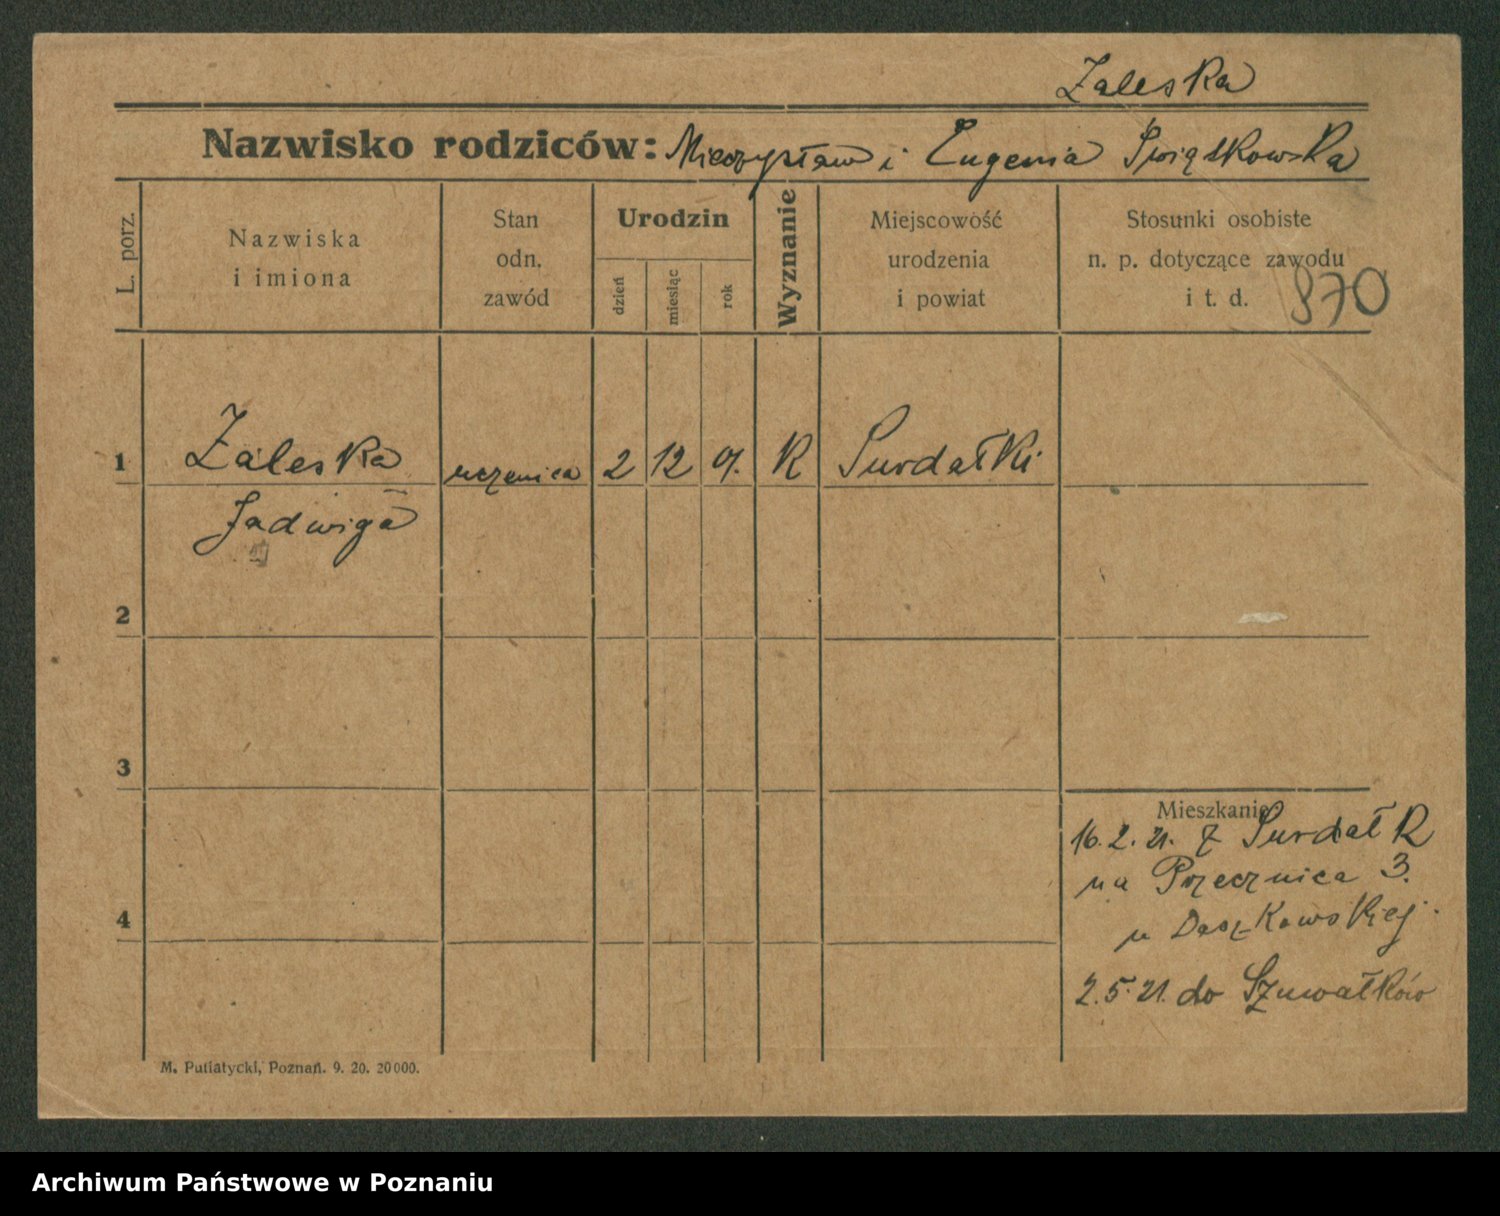 Zaleska
Nazwisko rodziców: Mieczysław i Eugenia Świątkowska
L. porz.
Nazwiska
i imiona
Stan
odn.
zawód
Urodzin
dzień
miesiąc
rok
Wyznanie
Miejscowość
urodzenia
i powiat
Stosunki osobiste
n. p. dotyczące zawodu
i t. d.
870
1 Zaleska uczenica 2 12 01. R Surdałki
Jadwiga
2
3
4
Mieszkanie
16.2.21. z Surdałk
na Przecznica 3.
u Daszkowskiej.
2.5.21. do Szuwałków
M. Putiatycki, Poznań. 9. 20. 20000.
Archiwum Państwowe w Poznaniu